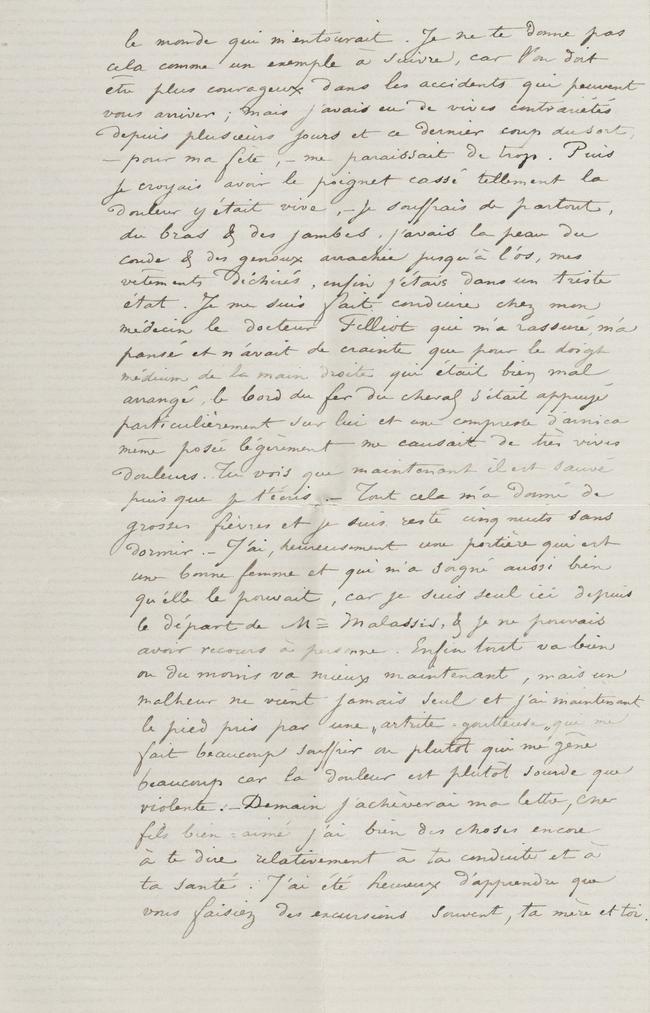 le monde qui m'entourait. Je ne te donne pas
cela comme un exemple à suivre, car l'on doit
être plus courageux dans les accidents qui peuvent
vous arriver; mais j'avais eu de vives contrariétés
depuis plusieurs jours et ce dernier coup du sort,
– pour ma fête, – me paraissait de trop. Puis
je croyais avoir le poignet cassé tellement la
douleur y était vive, – je souffrais de partout,
du bras & des jambes, j'avais la peau du
coude & des genoux arrachée jusqu'à l'os, mes
vêtements déchirés, enfin j'étais dans un triste
état. Je me suis fait conduire chez mon
médecin le docteur Filliot qui m'a rassuré, m'a
pansé et n'avait de crainte que pour le doigt
médium de la main droite qui était bien mal
arrangé, le bord du fer du cheval s'était appuyé
particulièrement sur lui et une compresse d'arnica
même posée légèrement me causait de très vives
douleurs. Tu vois que maintenant il est sauvé
puisque je t'écris. – Tout cela m'a donné de
grosses fièvres et je suis resté cinq nuits sans
dormir. – J'ai, heureusement une portière qui est
une bonne femme et qui m'a soigné aussi bien
qu'elle le pouvait, car je suis seul ici depuis
le départ de M= Malassis, & je ne pouvais
avoir recours à personne. Enfin tout va bien
ou du moins va mieux maintenant, mais un
malheur ne vient jamais seul et j'ai maintenant
le pied pris par une „artrite=goutteuse„ qui me
fait beaucoup souffrir ou plutôt qui me gêne
beaucoup car la douleur est plutôt sourde que
violente. – Demain j'achèverai ma lettre, cher
fils bien=aimé j'ai bien des choses encore
à te dire relativement à ta conduite et à
ta santé. J'ai été heureux d'apprendre que
vous faisiez des excursions souvent, ta mère et toi.